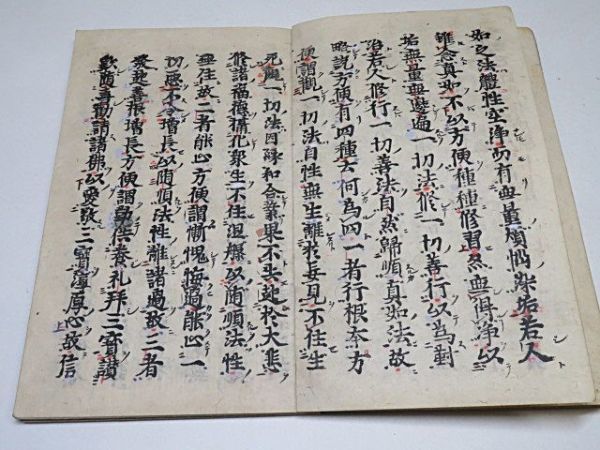 如之法體性空浄而有無量煩惱染垢若人
雖念真如不以方便種種修習亦無得浄以
垢無量無邊遍一切法修一切善行以為對
治若人修行一切善法自然歸順真如法故
略説方便有四種云何為四一者行根本方
便謂觀一切法自性無生離於妄見不住生
死觀一切法因縁和合業果不失起於大悲
修諸福德攝化衆生不住涅槃以隨順法性
無住故二者能止方便謂慚愧悔過能止一
切惡不令増長以隨順法性離諸過故三者
發起善根増長方便謂勤供養礼拜三寳讃
歎隨喜勸請諸佛以愛敬三寳淳厚心故信